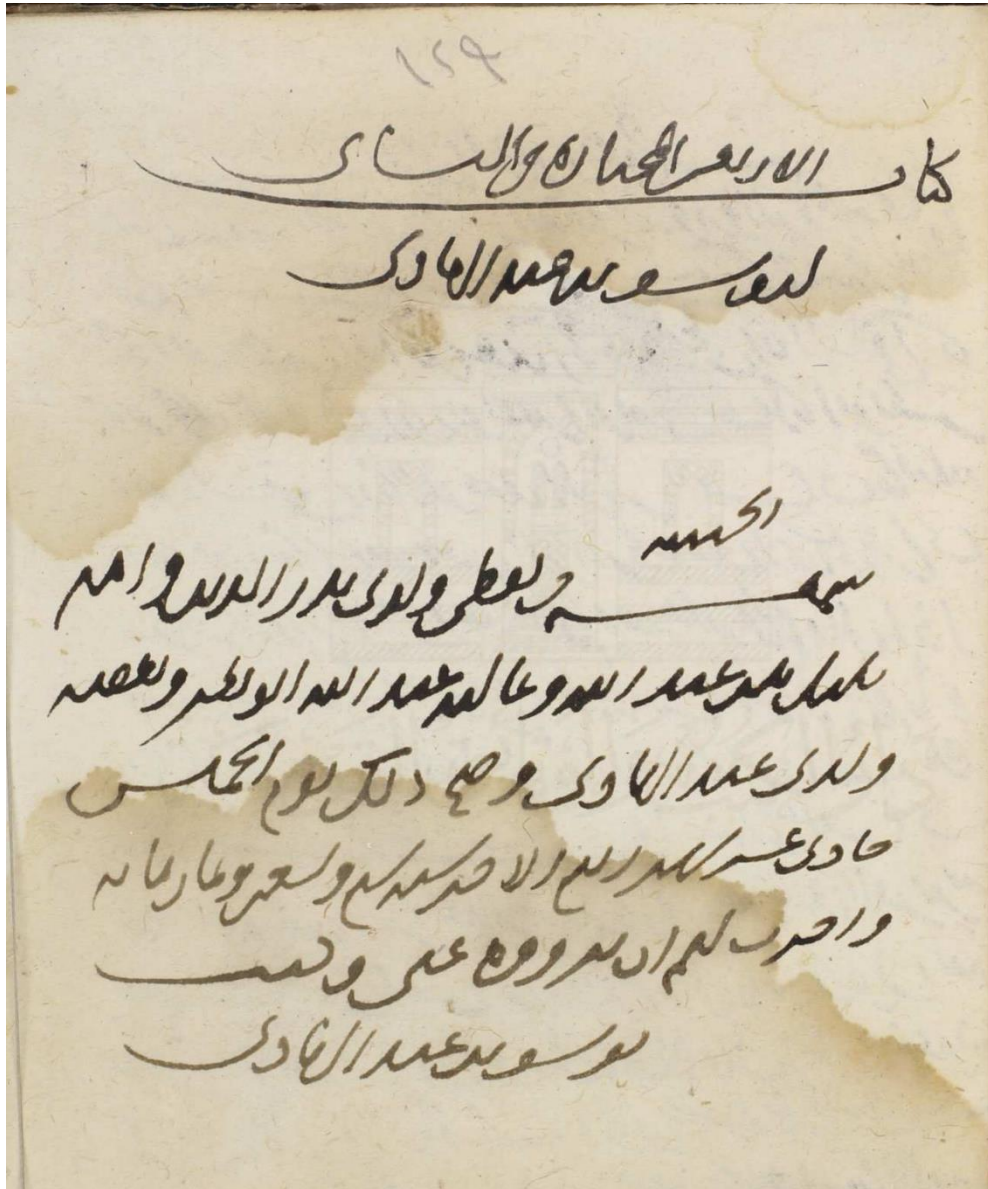 ١٢٩
كتاب الاربعين المختارة من النسائي
ليوسف بن عبد الهادي
الحمد لله
سمعه من لفظي ولدي بدر الدين وامه
بلبل بنت عبد الله عبد الله وبعضه
ولدي عبد الهادي وصح ذلك يوم الخميس
حادي عشر شهر ربيع الاخر سنة سبع وتسعين وثمان مائة
واجزت لهم ان يرووه عني وكتب
يوسف بن عبد الهادي